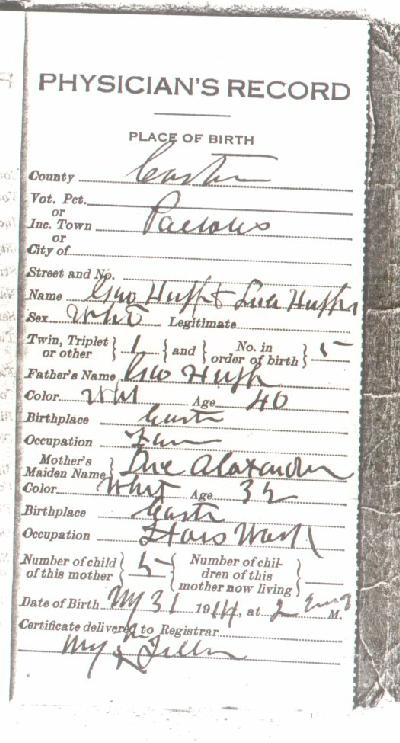 PHYSICIAN'S RECORD
PLACE OF BIRTH
County Carter
Vot. Pct.
or
Inc. Town
or
City of
Street and No.
Name Geo Huff & Huff
Sex Legitimate
Twin, Triplet or other } 1 { and } No. in order of birth } 5
Father's Name Geo Huff
Color Wht Age 40
Birthplace Carter
Occupation Farm
Mother's Maiden Name } Alexander
Color Wht Age 32
Birthplace Carter
Occupation
Number of child of this mother } 5 { Number of children of this mother now living }
Date of Birth My 31 1914, at 2 M.
Certificate delivered to Registrar